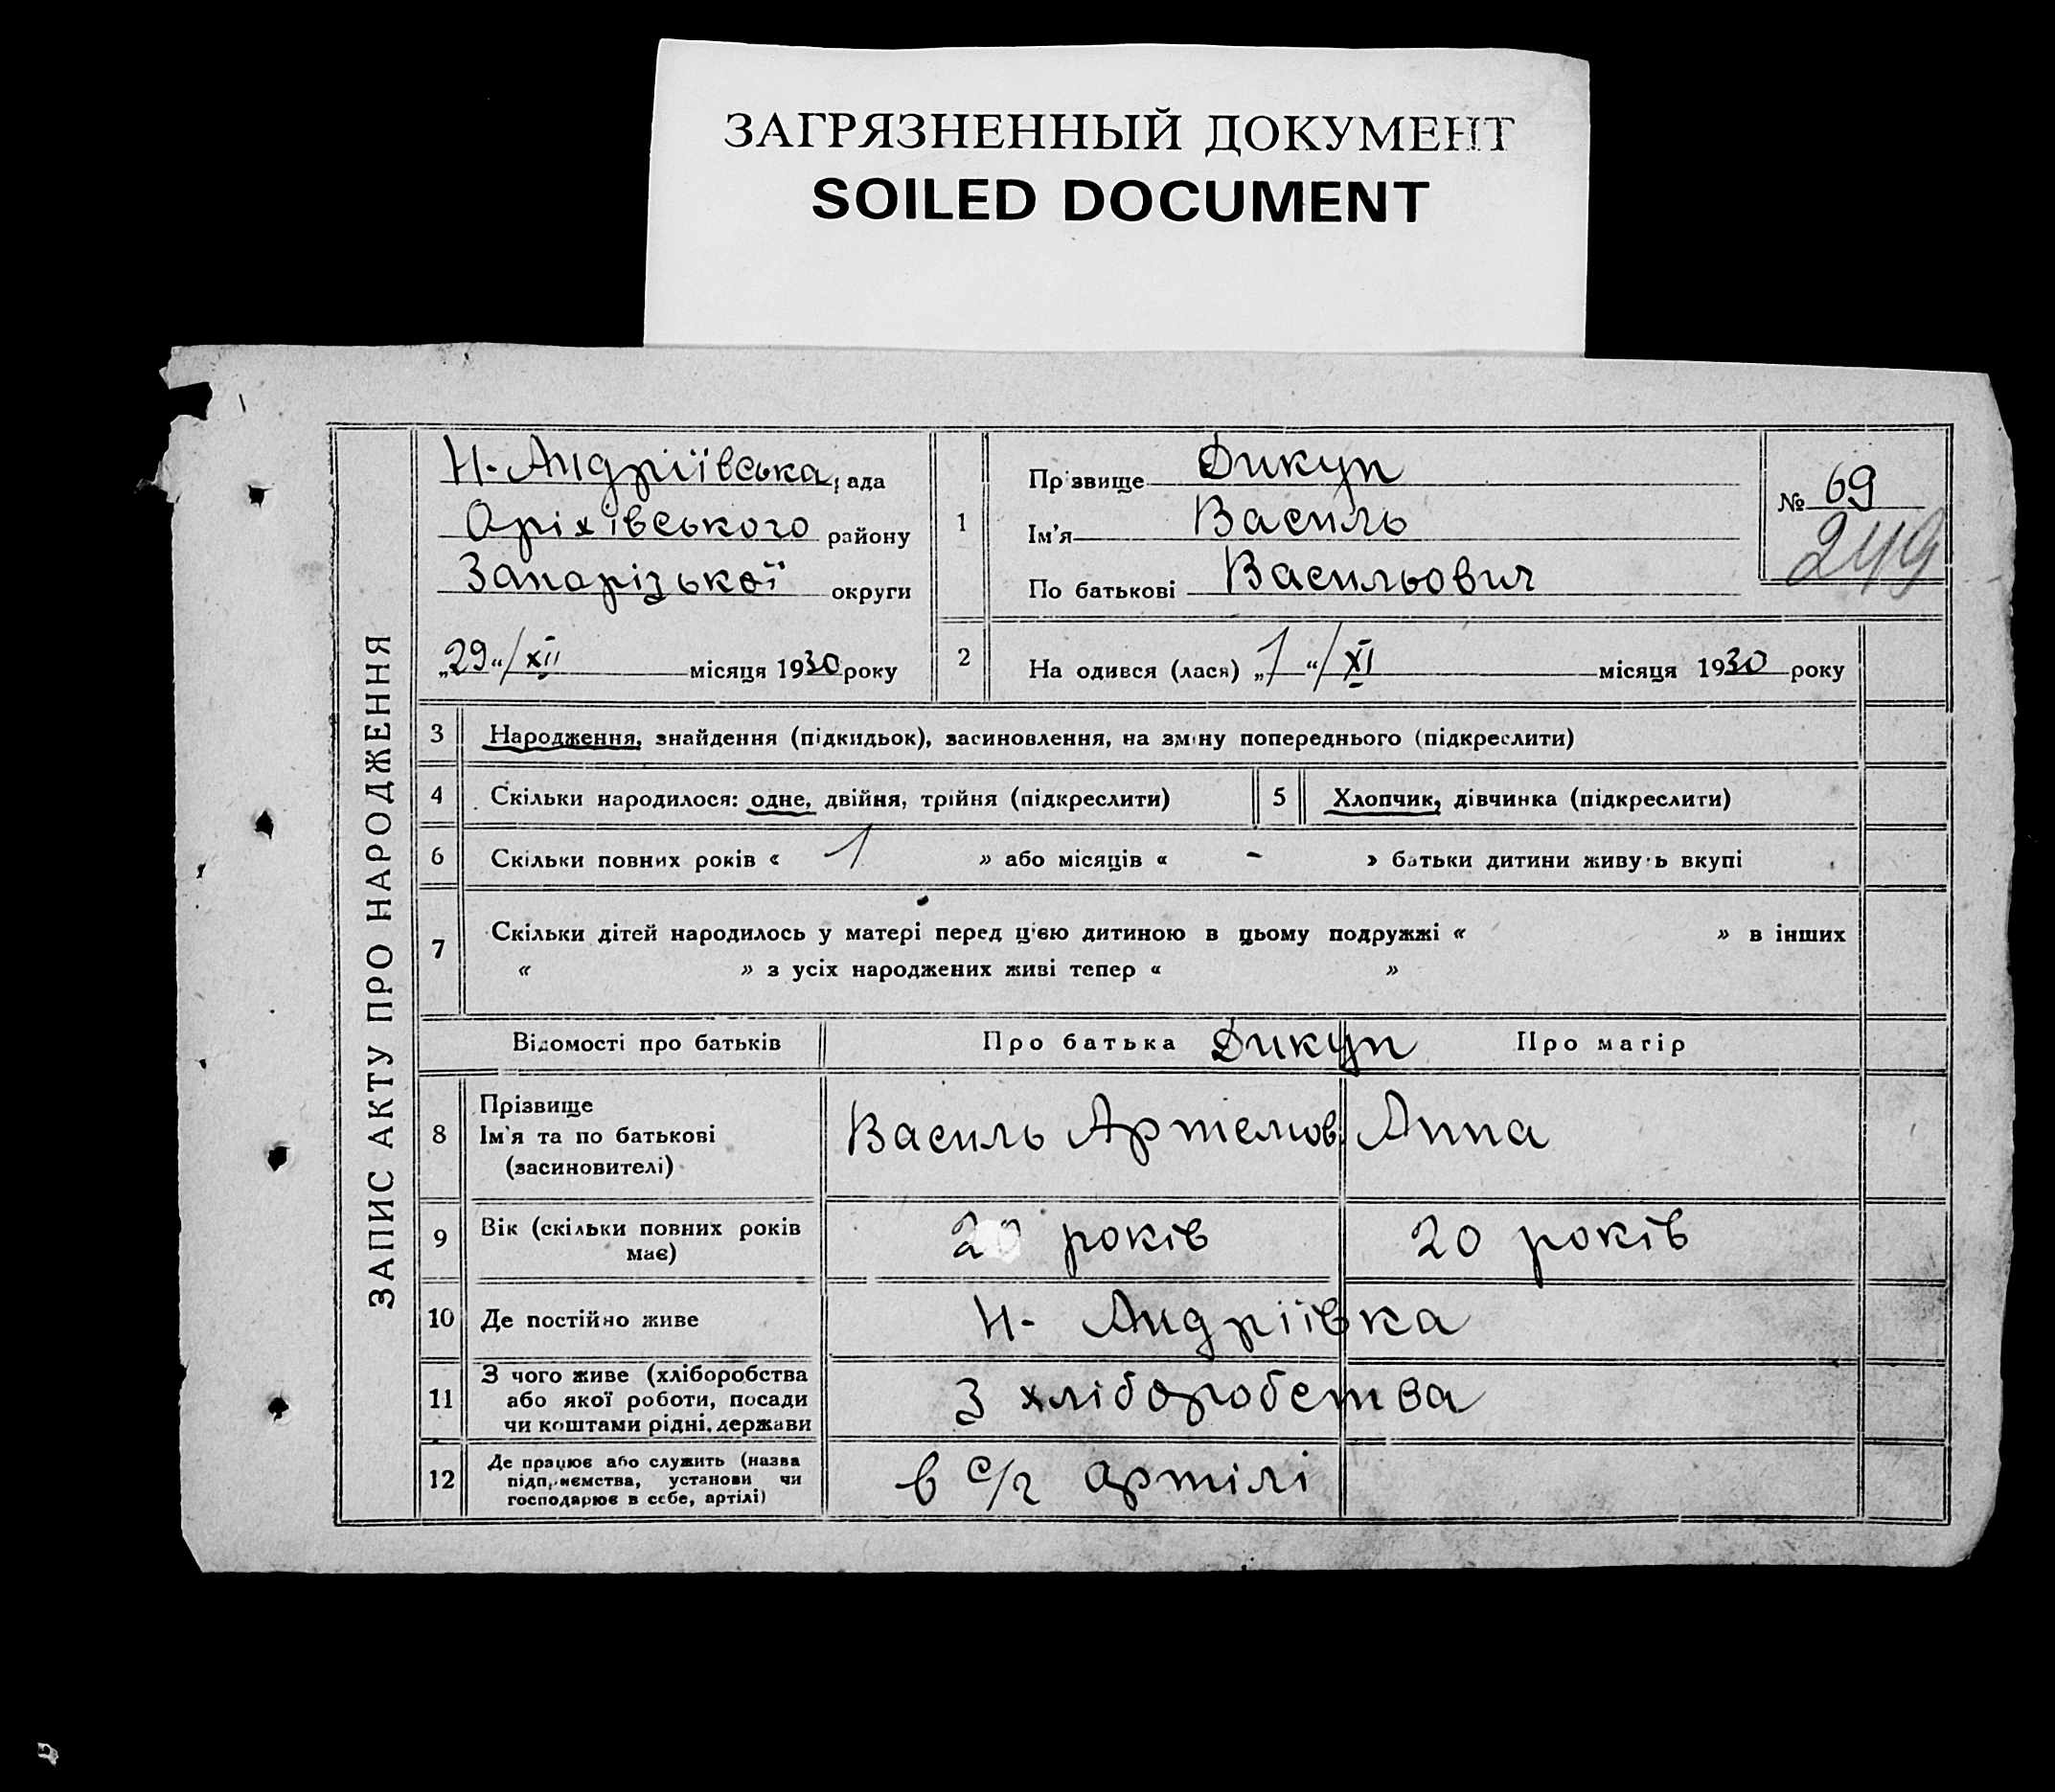 ЗАГРЯЗНЕННЫЙ ДОКУМЕНТ
SOILED DOCUMENT
ЗАПИС АКТУ ПРО НАРОДЖЕННЯ
Н-Андріївська рада
Оріхівського району
Запорізької округи
„29“/XII місяця 1930 року
1
Прізвище Дикун
Ім'я Василь
По батькові Васильович
№ 69
249
2 На одився (лася) „1“/XI місяця 1930 року
3 Народження, знайдення (підкидьок), засиновлення, на зміну попереднього (підкреслити)
4 Скільки народилося: одне, двійня, трійня (підкреслити) 5 Хлопчик, дівчинка (підкреслити)
6 Скільки повних років « 1 » або місяців « - » батьки дитини живуть вкупі
7 Скільки дітей народилось у матері перед ц'єю дитиною в цьому подружжі « » в інших
« » з усіх народжених живі тепер « »
Відомості про батьків Про батька Дикун Про матір
8 Прізвище
Ім'я та по батькові
(засиновителі)
Василь Артемов. Анна
9 Вік (скільки повних років
має)
20 років 20 років
10 Де постійно живе Н- Андріївка
11 З чого живе (хліборобства
або якої роботи, посади
чи коштами рідні, держави
З хліборобства
12 Де працює або служить (назва
підприємства, установи чи
господарює в себе, артілі)
в с/г артілі